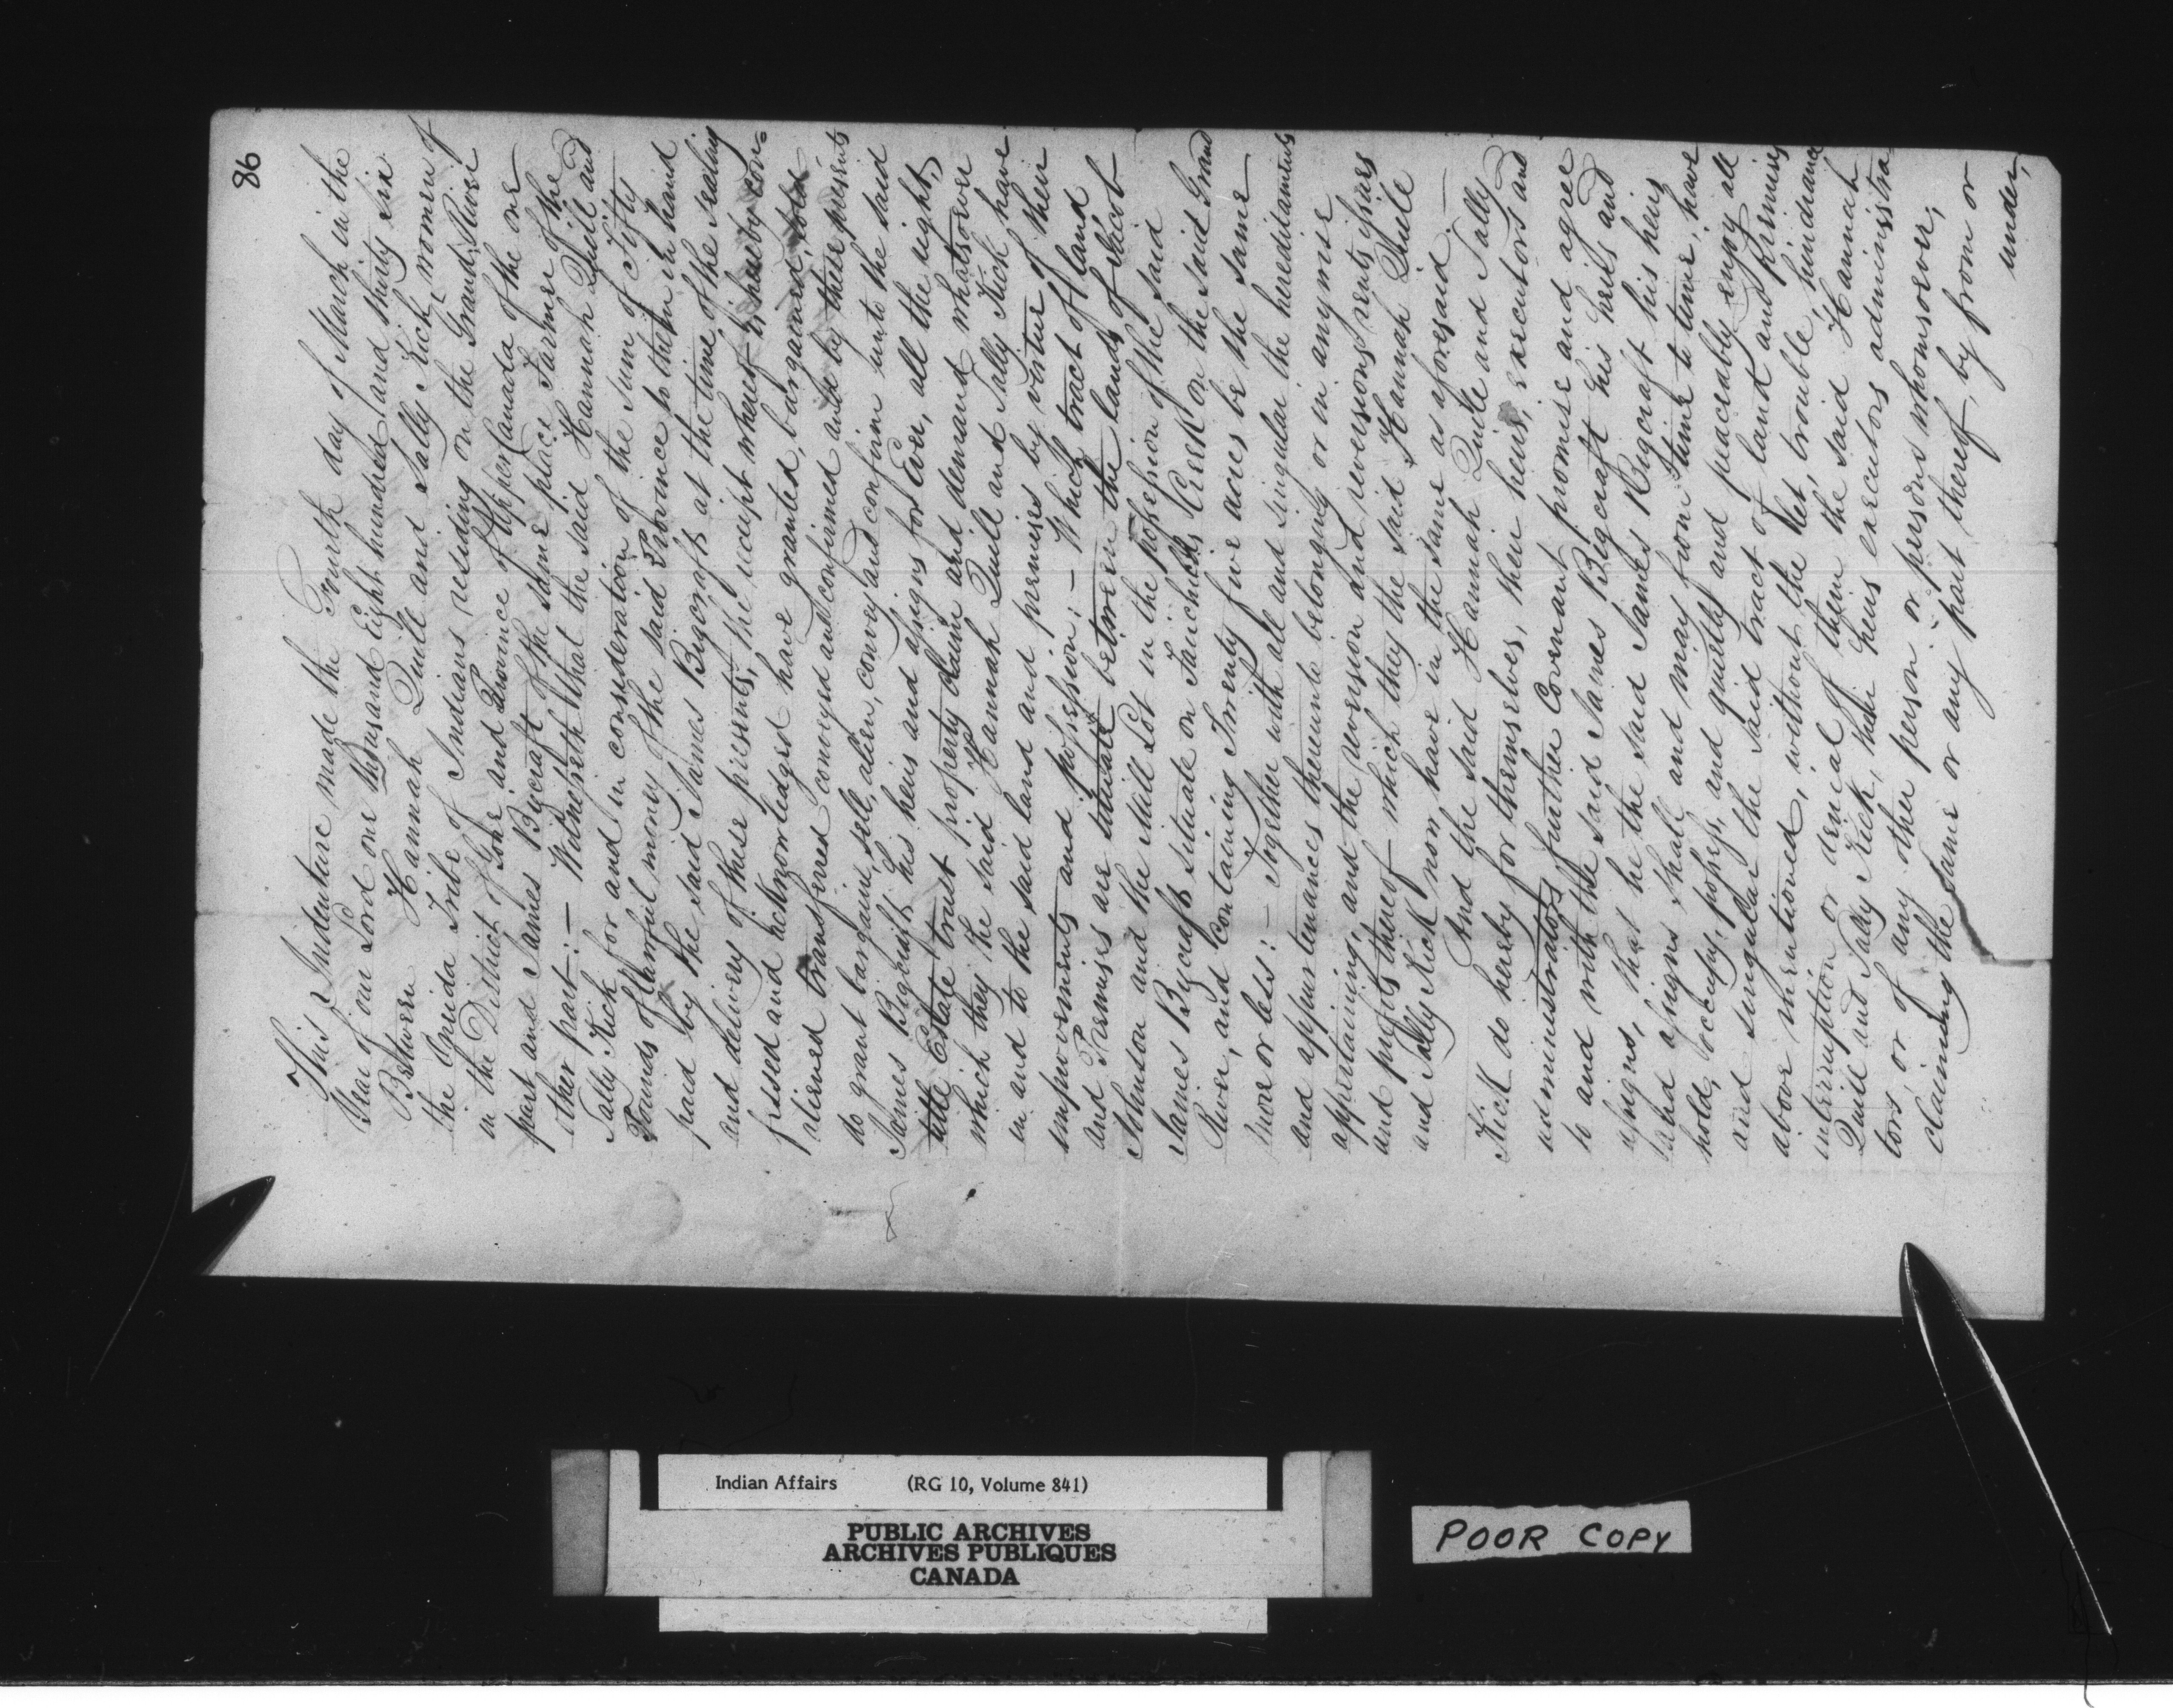 86
This Indenture made the Fourth day of March in the
Year of our Lord one thousand Eight hundred and thirty six
Between Hannah Quill and Sally Kick, women of
the Oneida Tribe of Indians residing on the Grand River
in the District of Gore and Province of Upper Canada of the one
part and James Bycraft of the same place Farmer of the
other part :— Witnesseth that the said Hannah Quill and
Sally Kick for and in consideration of the sum of Fifty
Pounds of lawful money of the said Province to them in hand
paid by the said James Bigcraft at the time of the sealing
and delivery of these presents, the receipt whereof is hereby con-
fessed and acknowledged have granted, bargained, sold
aliened transfered conveyed and confirmed and by these presents
do grant bargain, sell, alien, convey and confirm unto the said
James Bigcraft his heirs and assigns for Ever, all the right,
title Estate trust property claim and demand whatsoever
which they the said Hannah Quill and Sally Kick have
in and to the said land and premises by virtue of their
improvements and possession :— Which tract of land
and Premises are situate between the lands of Jacob
Johnson and the Mill Lot in the possession of the said
James Bycraft situate on Creek on the said Grand
River, and containing Twenty five acres be the same
more or less :— Together with all and singular the hereditaments
and appurtenances thereunto belonging or in anywise
appertaining, and the reversion and reversions rents issues
and profits thereof which they the said Hannah Quill
and Sally Kick now have in the same as aforesaid.—
And the said Hannah Quill and Sally
Kick do hereby for themselves, their heirs, executors and
administrators further Covenant promise and agree
to and with the said James Bigcraft his heirs and
assigns, that he the said James Bigcraft his heirs
and assigns shall and may from time to time, have
hold, occupy, possess, and quietly and peaceably enjoy all
and singular the said tract of land and premises
above mentioned, without the let, trouble, hindrance
interruption or denial of them the said Hannah
Quill and Sally Kick, their heirs executors administra
tors or of any other person or persons whomsoever,
claiming the same or any part thereof, by from or
under,
Indian Affairs (RG 10, Volume 841)
PUBLIC ARCHIVES
ARCHIVES PUBLIQUES
CANADA
POOR COPY